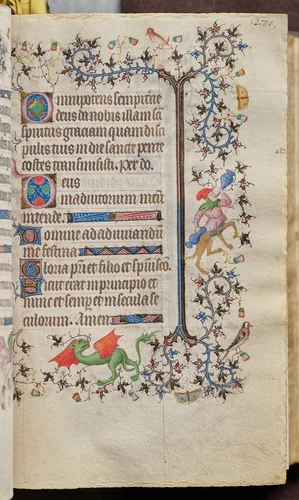 Omnipotens sempitne
deus da nobis illam sc̄i
spiritus graciam quam disci
pulis tuis in die sancte pente
costes transmisisti. Per do.
Deus
in adiutorium meu
intende.
Domine ad adiuvandū
me festina
Gloria pr̄i et filio et sp̄ui sc̄o
Sicut erat in principio et
nunc et semp et in secula se
culorum. Amen